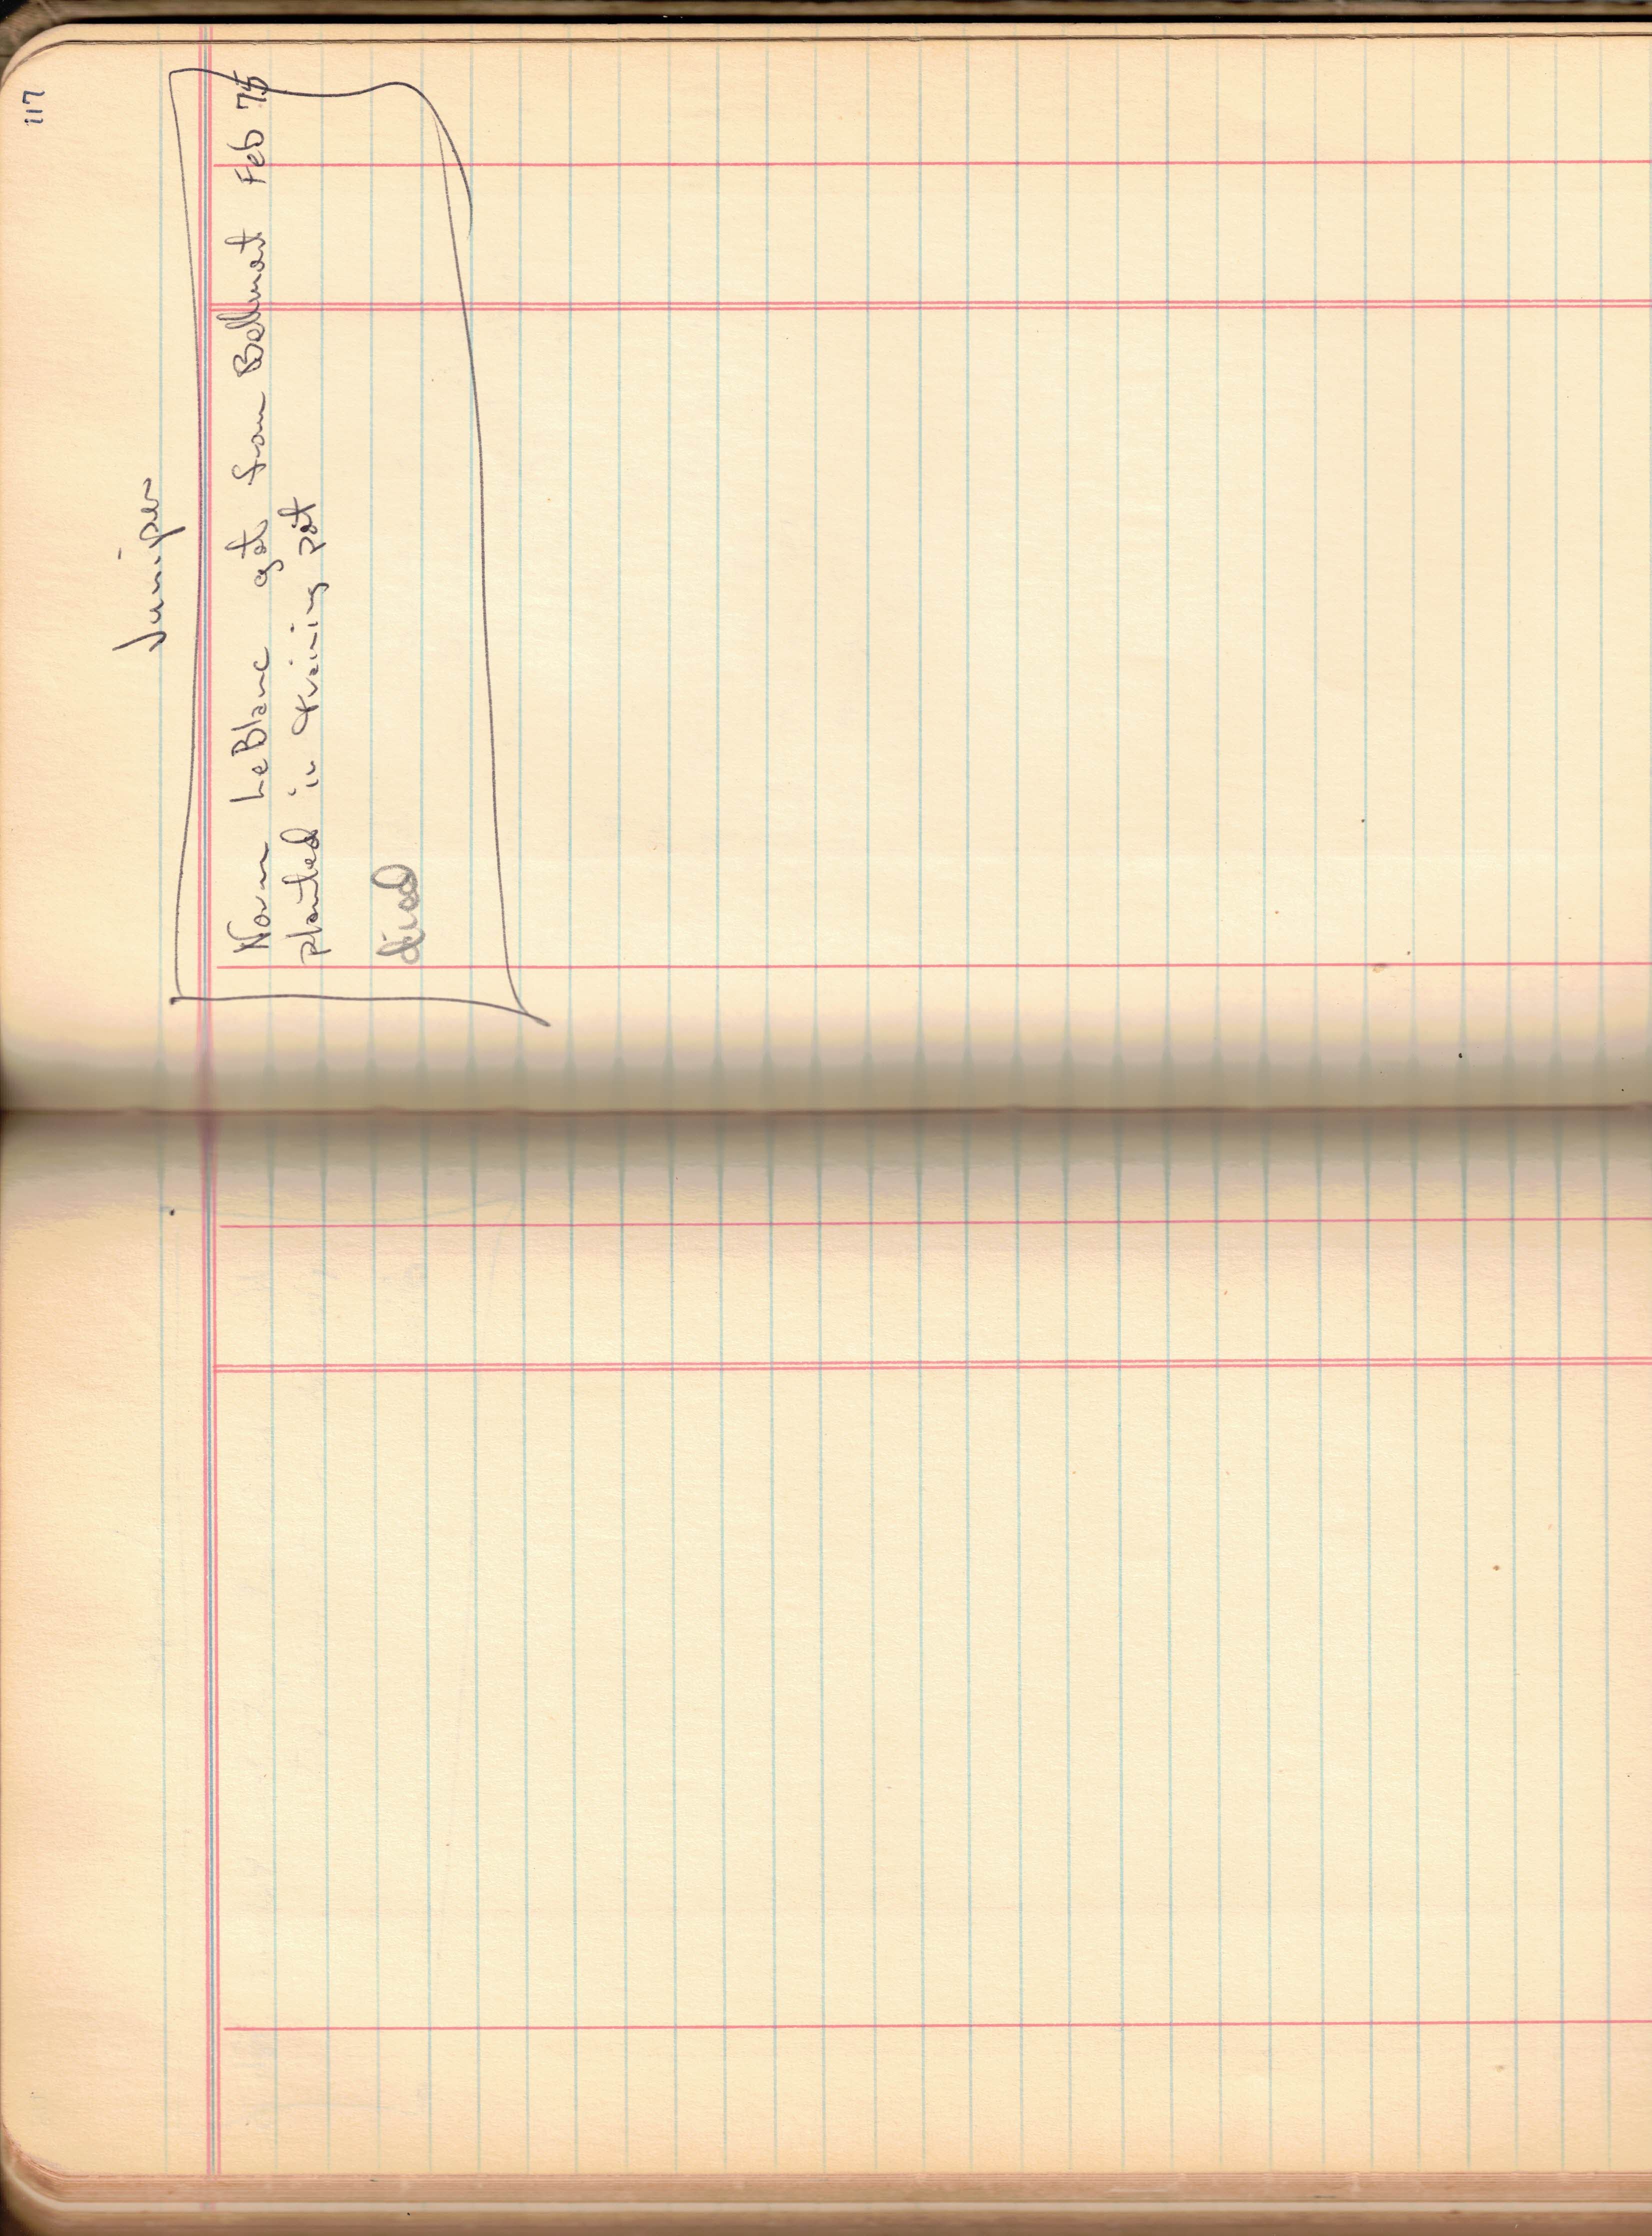 117
Juniper
Norm LeBlanc got from Bellmont Feb 75
planted in training pot
died